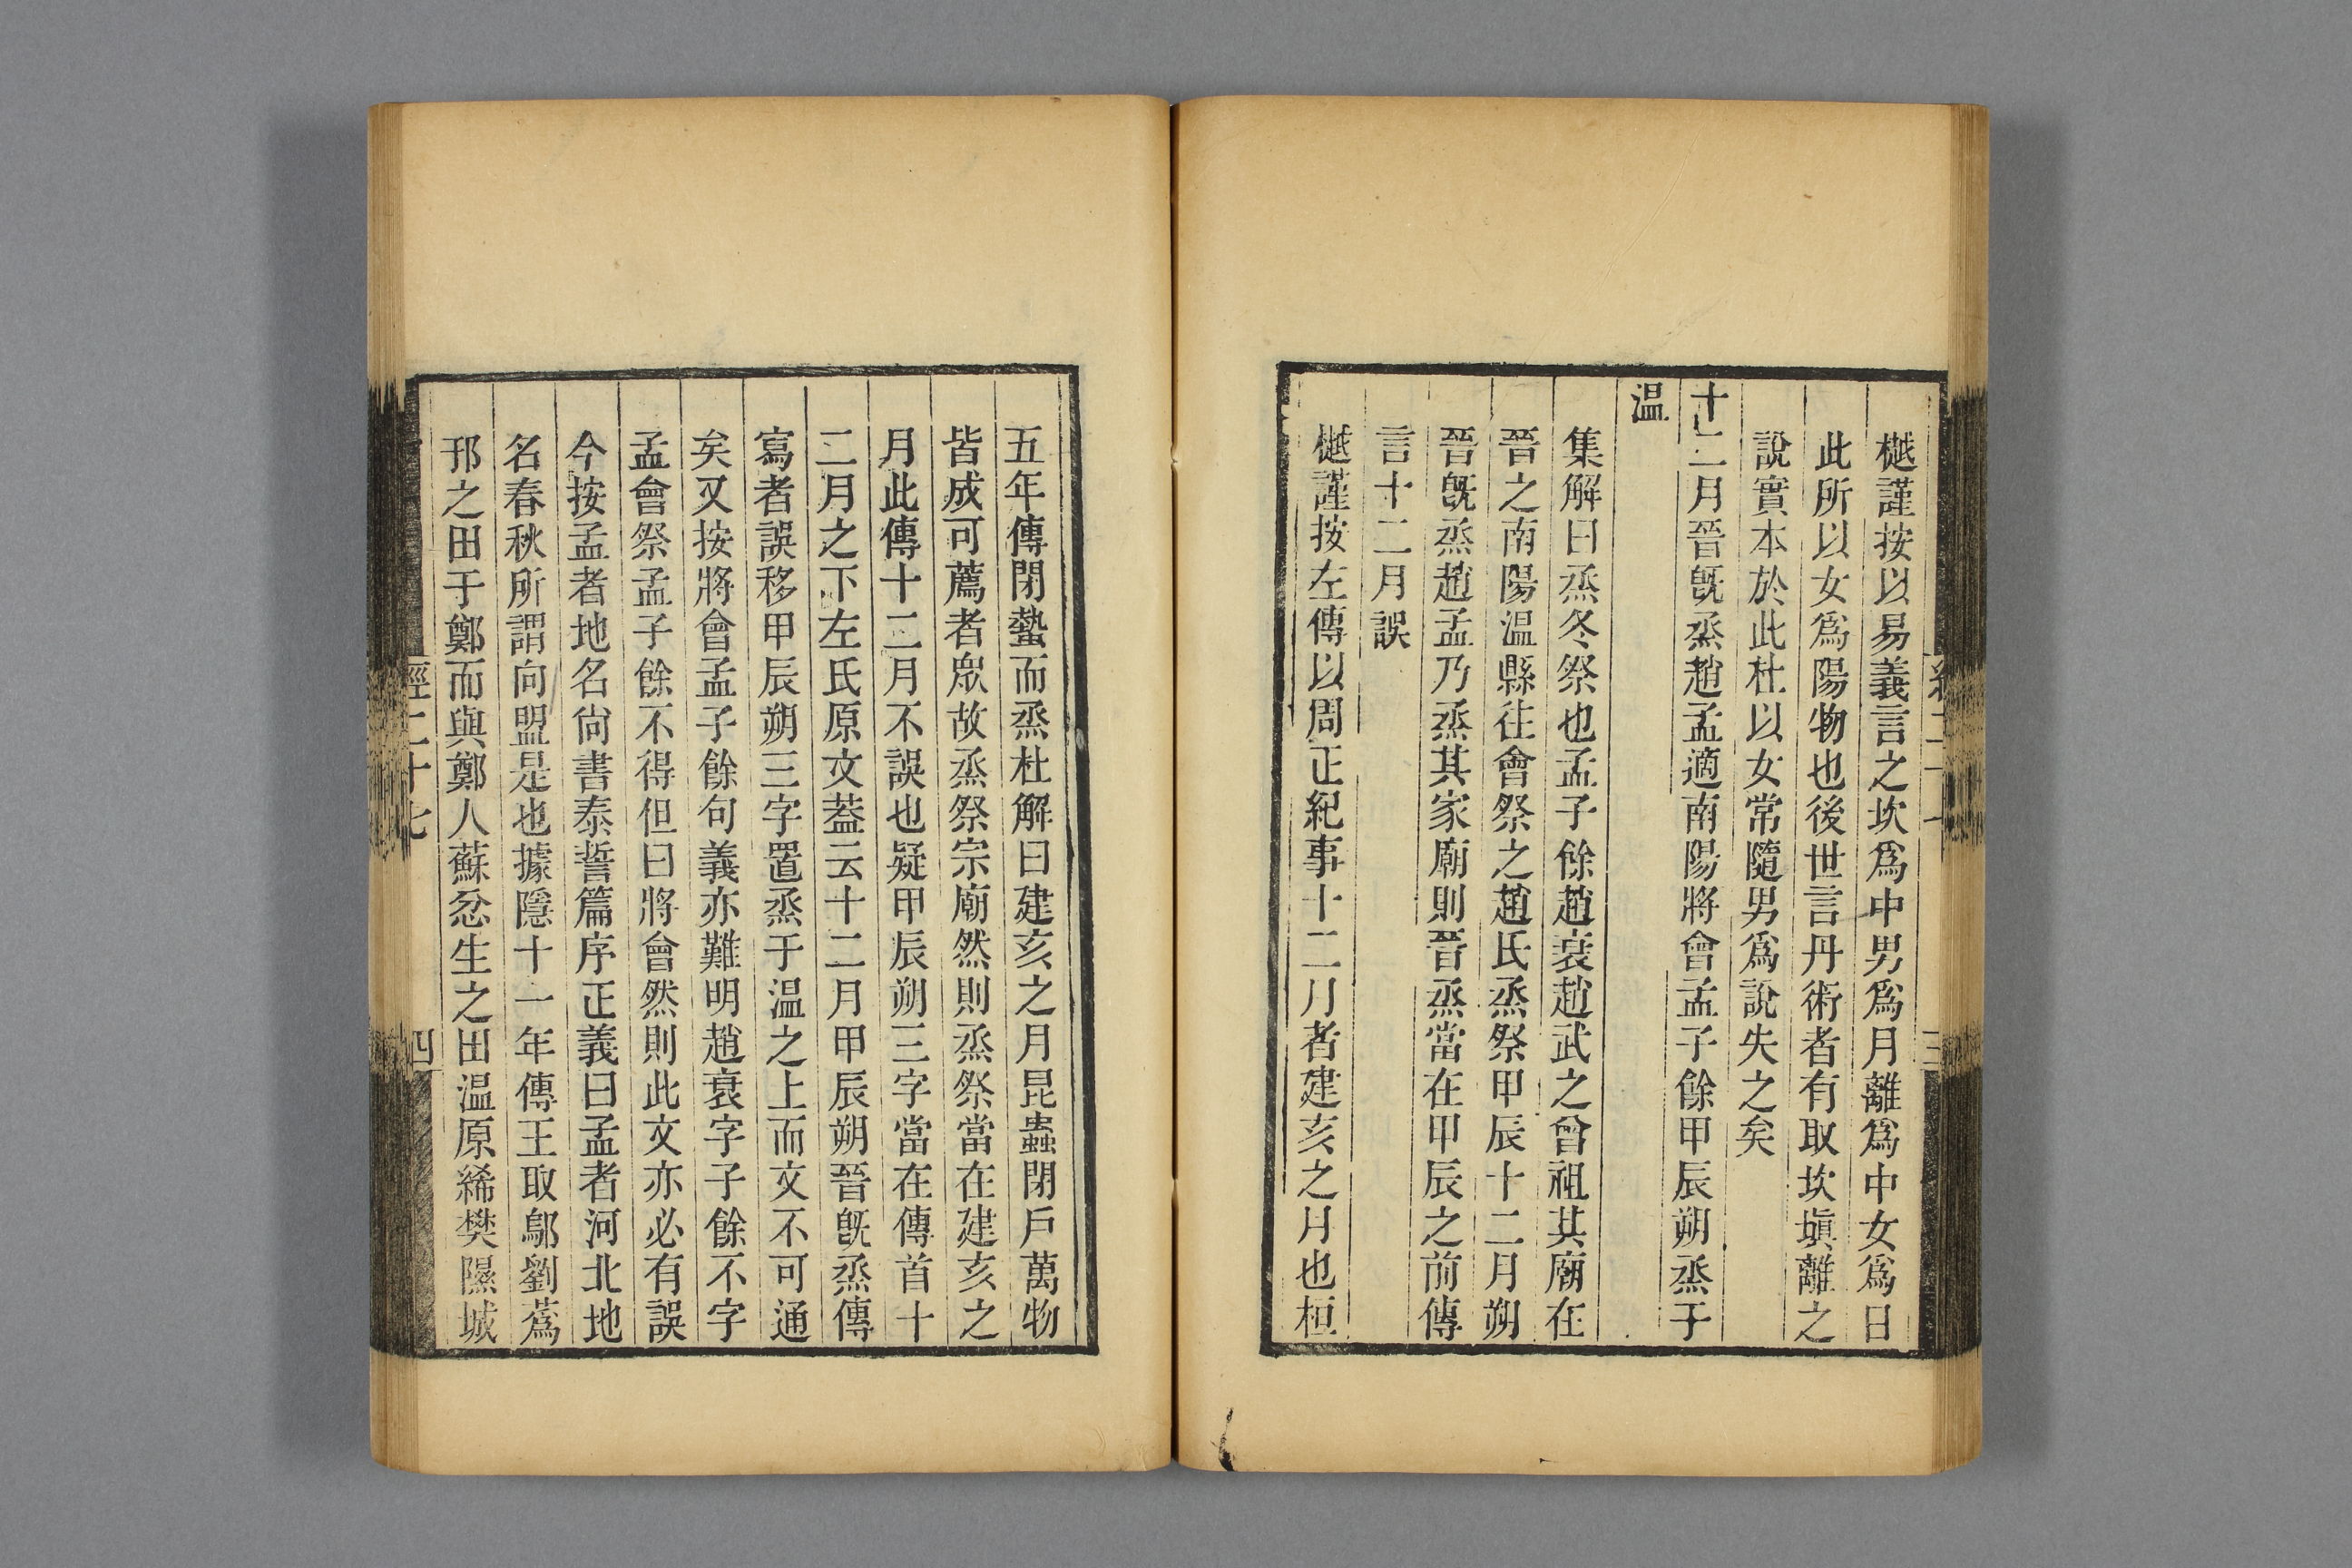 樾謹按以易義言之坎爲中男爲月離爲中女爲日
此所以女爲陽物也後世言丹術者有取坎塡離之
說實本於此杜以女常隨男爲說失之矣
十二月晉旣烝趙孟適南陽將會孟子餘甲辰朔烝于
温
集解曰烝冬祭也孟子餘趙衰趙武之曾祖其廟在
晉之南陽温縣往會祭之趙氏烝祭甲辰十二月朔
晉旣烝趙孟乃烝其家廟則晉烝當在甲辰之前傳
言十二月誤
樾謹按左傳以周正紀事十二月者建亥之月也桓
五年傳閉蟄而烝杜解曰建亥之月昆蟲閉戶萬物
皆成可薦者衆故烝祭宗廟然則烝祭當在建亥之
月此傳十二月不誤也疑甲辰朔三字當在傳首十
二月之下左氏原文葢云十二月甲辰朔晉旣烝傳
寫者誤移甲辰朔三字置烝于温之上而文不可通
矣又按將會孟子餘句義亦難明趙衰字子餘不字
孟會祭孟子餘不得但曰將會然則此文亦必有誤
今按孟者地名尙書泰誓篇序正義曰孟者河北地
名春秋所謂向盟是也據隱十一年傳王取鄔劉蒍
邘之田于鄭而與鄭人蘇忿生之田温原絺樊隰城
經二十七
四